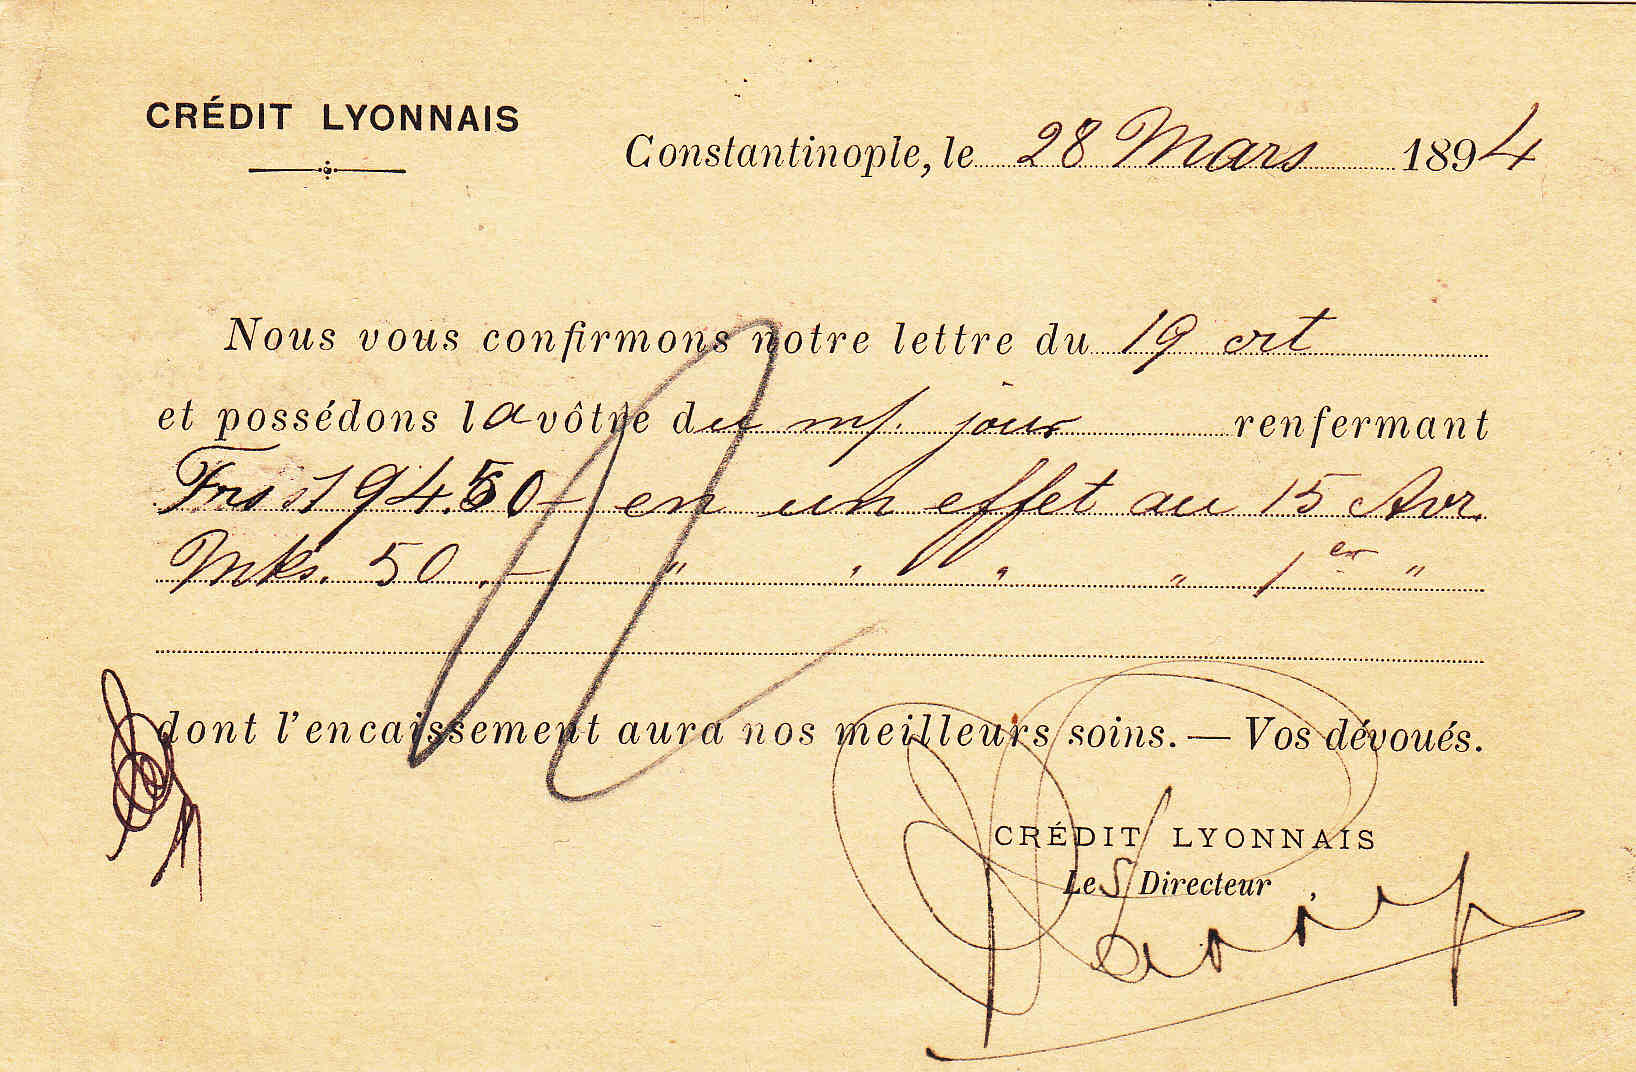 CRÉDIT LYONNAIS
Constantinople, le 28 Mars 1894
Nous vous confirmons notre lettre du 19 crt
et possédons la vôtre du m/. jour renfermant
Frs 194.50 - en un effet au 15 Avr.
Mks. 50.- " " " " 1er "
dont l'encaissement aura nos meilleurs soins. — Vos dévoués.
CRÉDIT LYONNAIS
Le S/Directeur